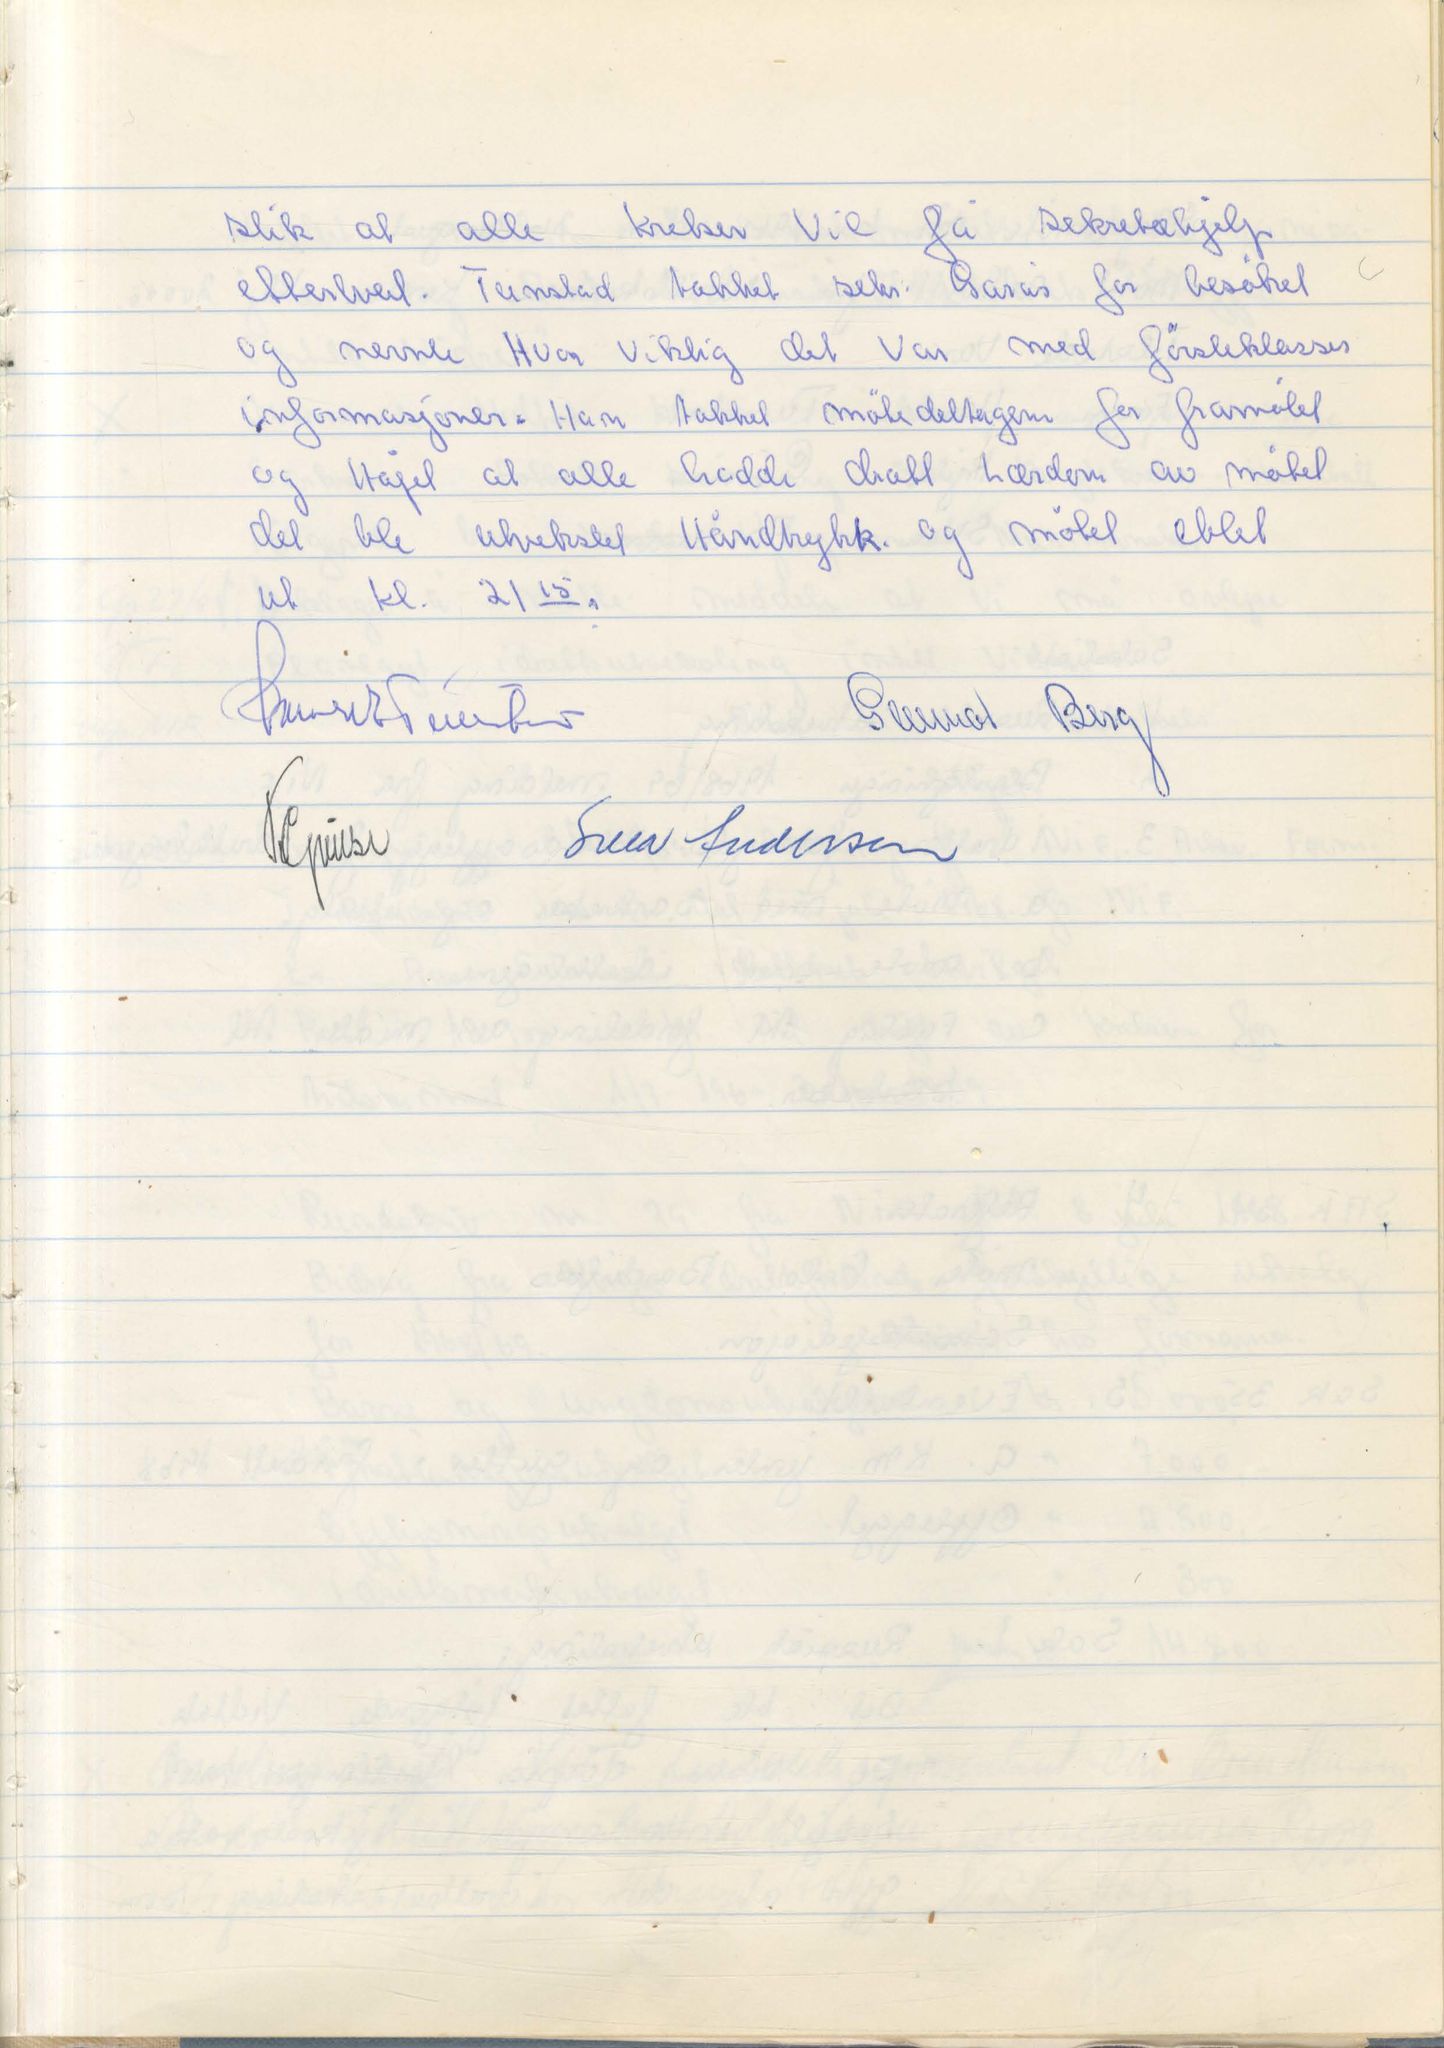 slik at alle kretser vil få sekretærhjelp
etterhvert. Tunstad takket sekr. Garås for besøket
og nevnte Hvor viktig det var med førsteklasses
informasjoner. Han takket møtedeltagern for framøtet
og Håpet at alle hadde dratt Lærdom av møtet
det ble utvekslet Håndtrykk. og møtet ebbet
ut kl. 21 15.
Gunnar Berg
Svea Andersen